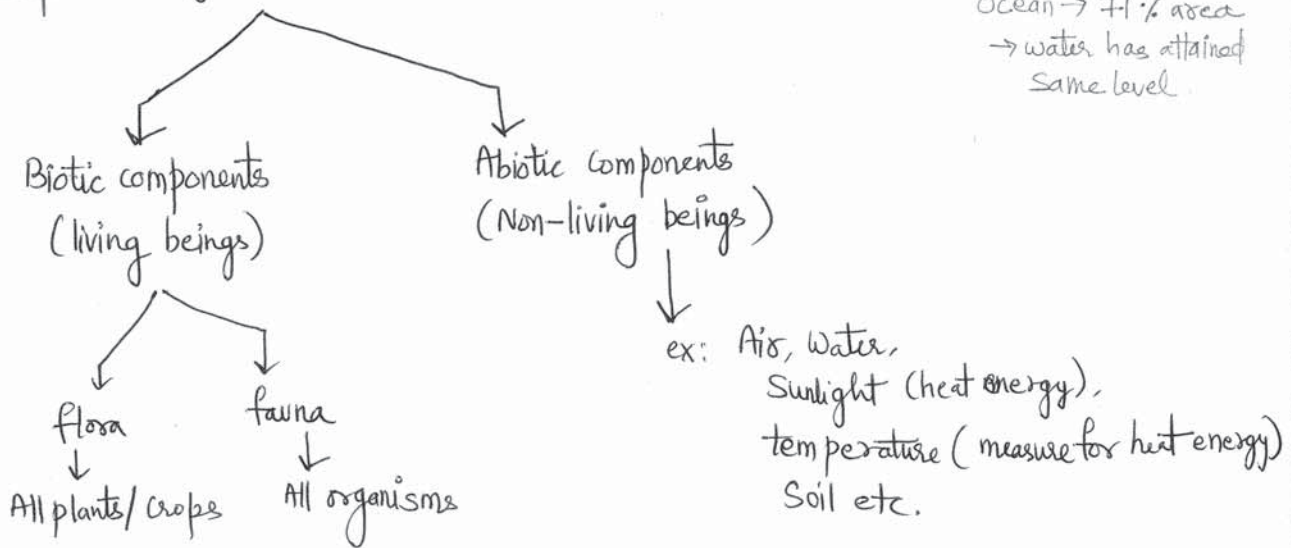 Ocean → 71% area
→ water has attained
Same level.
Biotic components
(living beings)
Abiotic Components
(Non-living beings)
ex: Air, Water,
Sunlight (heat energy),
temperature (measure for heat energy)
Soil etc.
flora
fauna
All plants/crops
All organisms